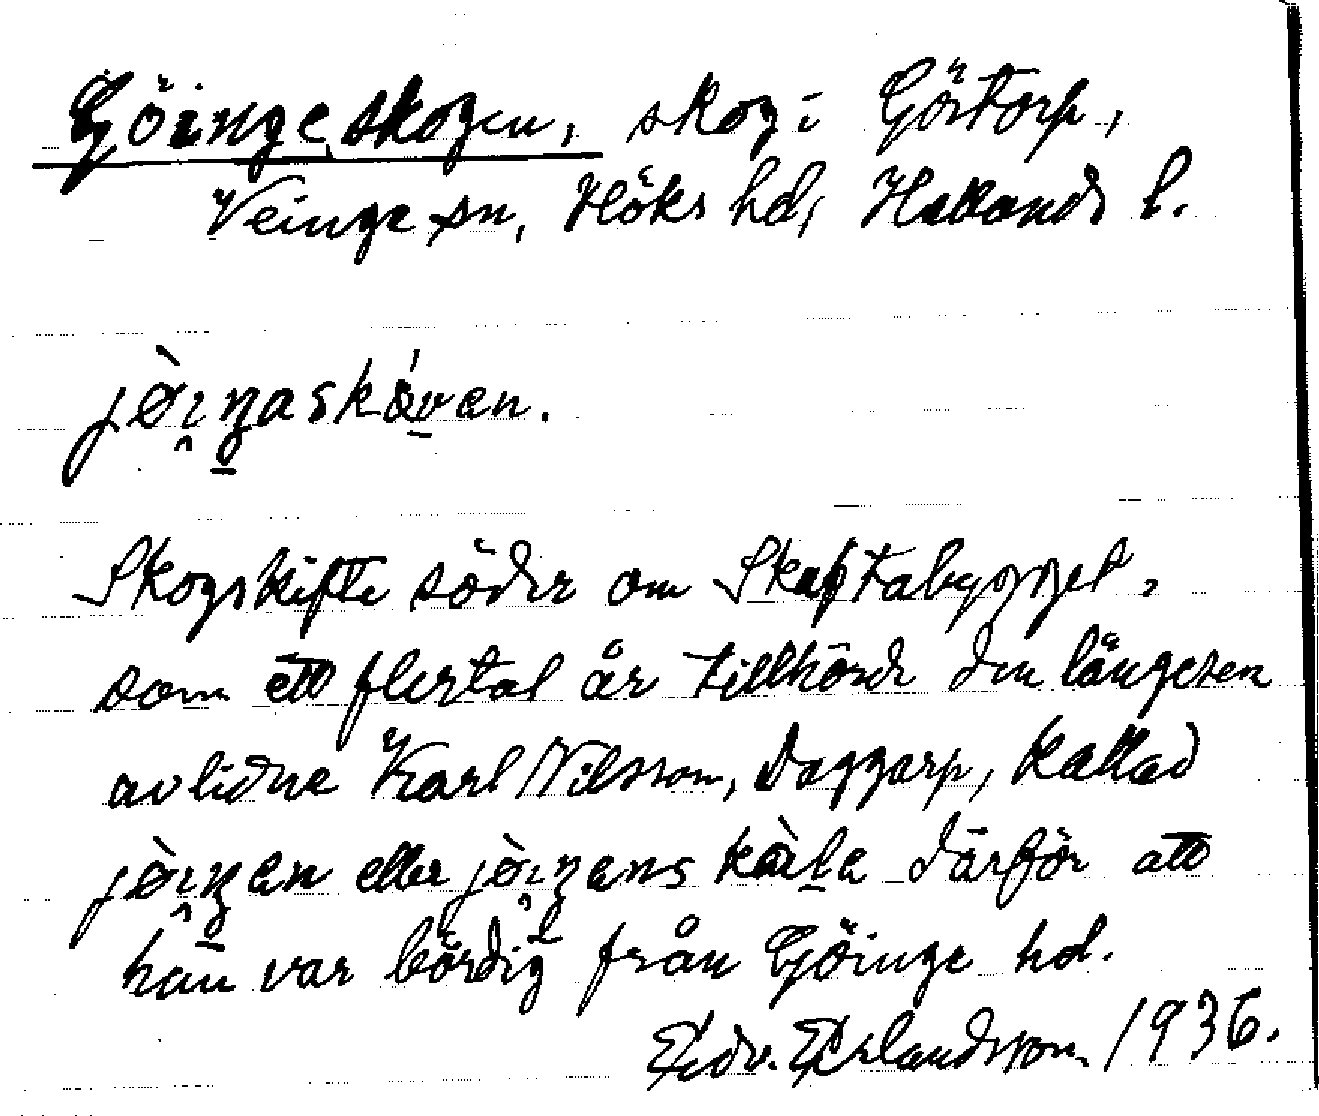 Göingeskogen, skog i Göstorp,
Veinge sn, Höks hd, Hallands l.
jø̀i̯ŋaskǿven.
Skogskifte söder om Skaftabygget,
som ett flertal år tillhörde den längesen
avlidne Karl Nilsson, Daggarp, kallad
jø̀i̯ŋen eller jø̀i̯ŋens kàla därför att
han var bördig från Göinge hd.
Edv. Erlandsson 1936.